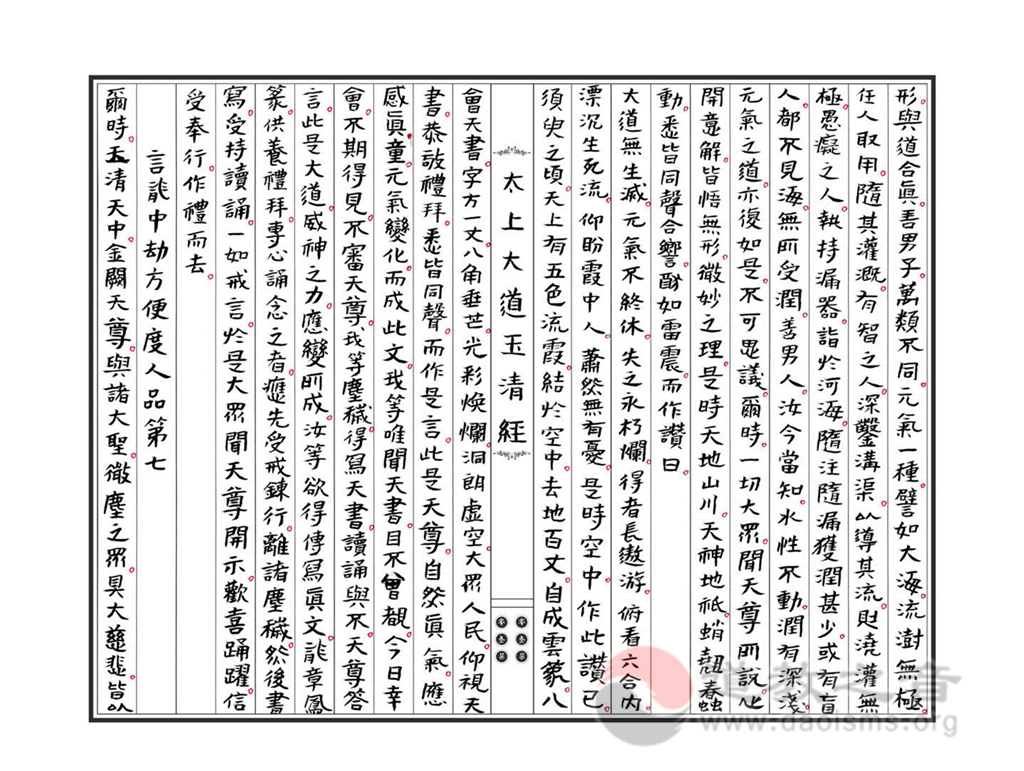 形與道合真。善男子。萬類不同。元氣一種。譬如大海。流澍無極。
任人取用。隨其灌溉。有智之人。深鑿溝渠。以導其流。則澆灌無
極。愚癡之人。執持漏器。詣於河海。隨注隨漏。獲潤甚少。或有盲
人。都不見海。無所受潤。善男人。汝今當知。水性不動。潤有深淺。
元氣之道。亦復如是。不可思議。爾時。一切大眾。聞天尊所說。心
開意解。皆悟無形微妙之理。是時天地山川。天神地祇。蛸翹蠢蠕
動。悉皆同聲合響。酬如雷震。而作讚曰。
大道無生滅。元氣不終休。失之永朽爛。得者長遨游。俯看六合內。
漂沉生死流。仰盼霞中人。蕭然無有憂。是時空中。作此讚已。
須臾之頃。天上有五色流霞。結於空中。去地百丈。自成雲篆。八
太上大道玉清經
會天書。字方一丈。八角垂芒。光彩煥爛。洞朗虛空。大眾人民。仰視天
書。恭敬禮拜。悉皆同聲。而作是言。此是天尊。自然真氣。應
感真童。元氣變化。而成此文。我等唯聞天書。目不曾覩。今日幸
會。不期得見。不審天尊。我等塵穢。得寫天書。讀誦與不。天尊答
言。此是大道。威神之力。應變所成。汝等欲得傳寫真文。龍章鳳
篆。供養禮拜。專心誦念之者。應先受戒鍊行。離諸塵穢。然後書
寫。受持讀誦。一如戒言。於是大眾聞天尊開示。歡喜踊躍。信
受奉行。作禮而去。
言說中劫方便度人品第七
爾時。玉清天中金闕天尊。與諸大聖。微塵之眾。具大慈悲。皆以
道教之音
www.daoisms.org